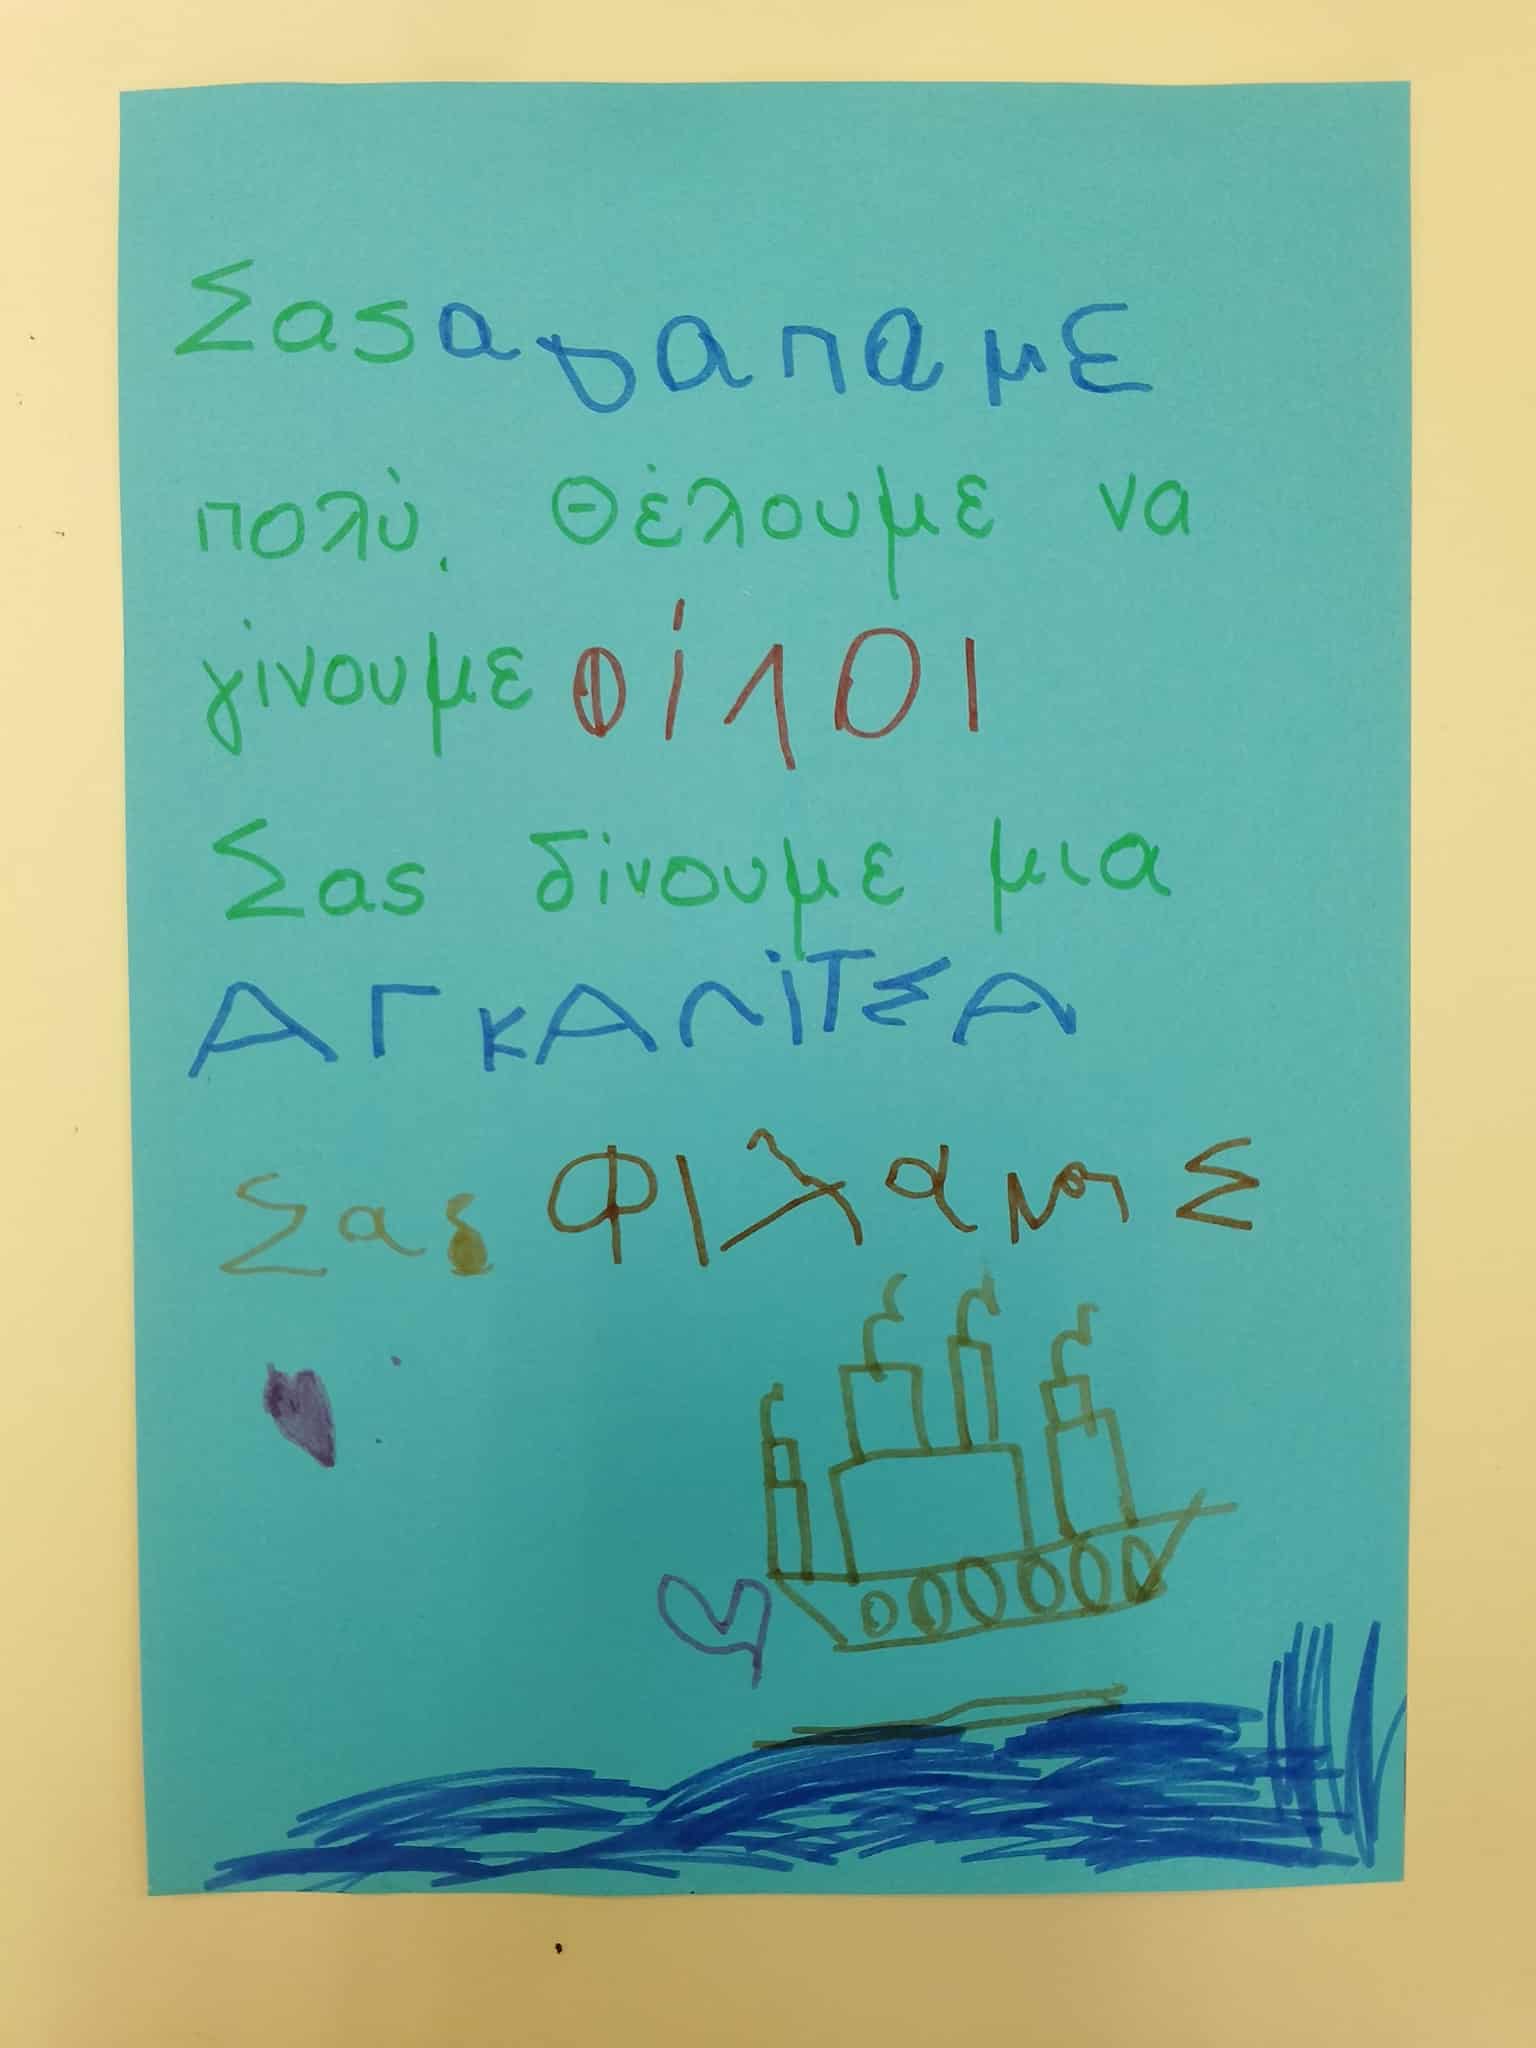 Σας αγαπαμε
πολύ. Θέλουμε να
γίνουμε φίλοι
Σας δίνουμε μια
ΑΓΚΑΛίΤΣΑ
Σας ΦΙλαμε